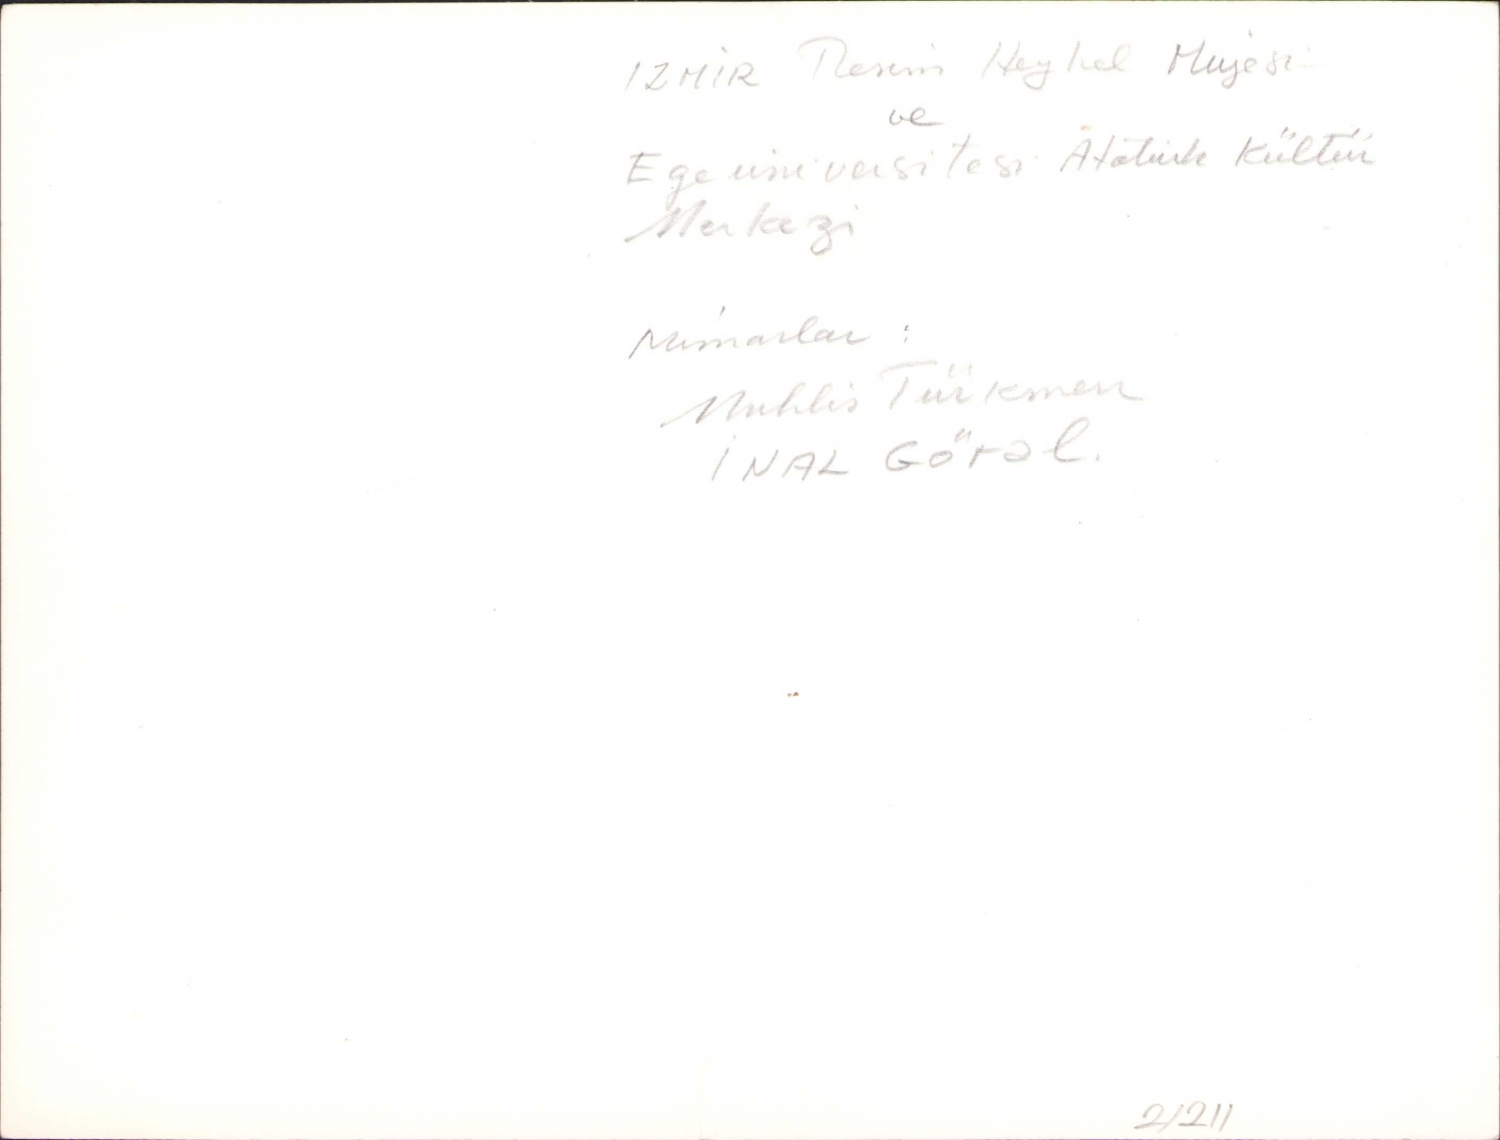 IZMİR Resim Heykel Müzesi
ve
Ege üniversitesi Atatürk Kültür
Merkezi
Mimarlar :
Muhlis Türkmen
İNAL Göral.
2/211